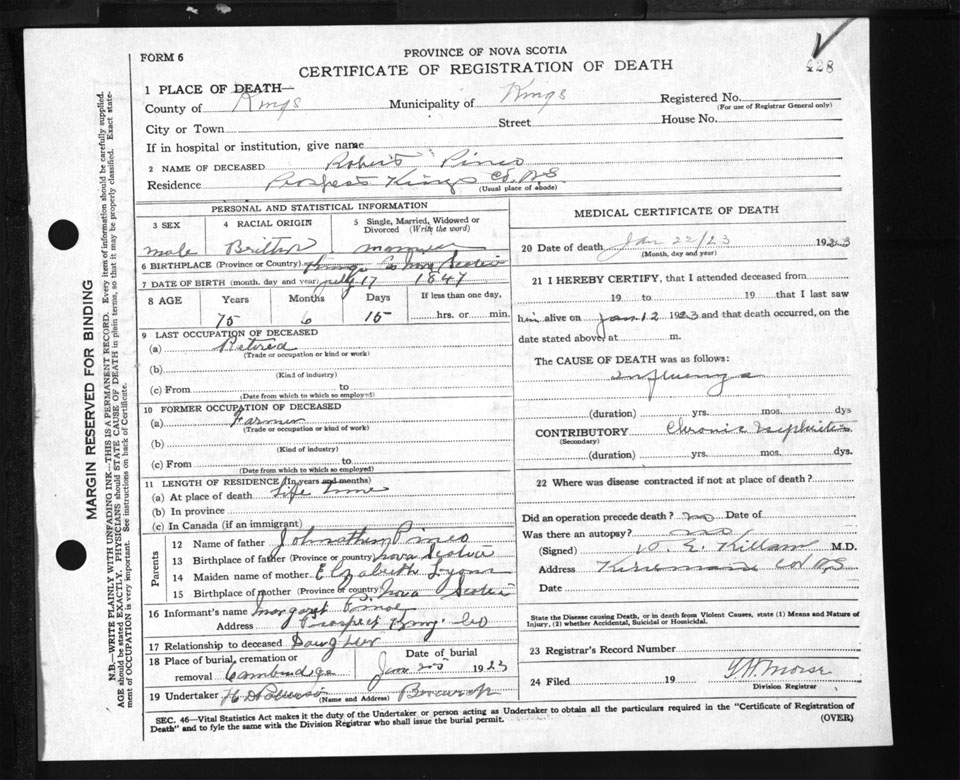 FORM 6
PROVINCE OF NOVA SCOTIA
CERTIFICATE OF REGISTRATION OF DEATH
428
1 PLACE OF DEATH—
County of Kings Municipality of Kings Registered No.
(For use of Registrar General only)
City or Town Street House No.
If in hospital or institution, give name
2 NAME OF DECEASED Robert Pineo
Residence Prospect Kings Co. N.S
(Usual place of abode)
PERSONAL AND STATISTICAL INFORMATION
3 SEX 4 RACIAL ORIGIN 5 Single, Married, Widowed or Divorced (Write the word)
male British
6 BIRTHPLACE (Province or Country) Kings Co Nova Scotia
7 DATE OF BIRTH (month, day and year) July 17 1847
8 AGE Years Months Days If less than one day,
75 6 15 hrs. or min.
9 LAST OCCUPATION OF DECEASED
(a) Retired
(Trade or occupation or kind or work)
(b)
(Kind of industry)
(c) From to
(Date from which to which so employed)
10 FORMER OCCUPATION OF DECEASED
(a) Farmer
(Trade or occupation or kind of work)
(b)
(Kind of industry)
(c) From to
(Date from which to which so employed)
11 LENGTH OF RESIDENCE (In years and months)
(a) At place of death Life Time
(b) In province
(c) In Canada (if an immigrant)
Parents
12 Name of father Johnathen Pineo
13 Birthplace of father (Province or country) Nova Scotia
14 Maiden name of mother Elzabeth Lyons
15 Birthplace of mother (Province or country) Nova Scotia
16 Informant's name Margaret Pineo
Address Prospect Kings Co
17 Relationship to deceased Daughter
18 Place of burial, cremation or removal Cambridge Date of burial Jan 25 1923
19 Undertaker Berwick
(Name and Address)
MEDICAL CERTIFICATE OF DEATH
20 Date of death Jan 22/23 1923
(Month, day and year)
21 I HEREBY CERTIFY, that I attended deceased from
19 to 19 that I last saw
him alive on Jan 12 1923 and that death occurred, on the
date stated above, at m.
The CAUSE OF DEATH was as follows:
Influenza
(duration) yrs. mos. dys
CONTRIBUTORY Chronic Nephritis
(Secondary)
(duration) yrs. mos. dys.
22 Where was disease contracted if not at place of death?
Did an operation precede death? no Date of
Was there an autopsy? no
(Signed) W. E. Killam M.D.
Address Co N.S
Date
State the Disease causing Death, or in death from Violent Causes, state (1) Means and Nature of
Injury, (2) whether Accidental, Suicidal or Homicidal.
23 Registrar's Record Number
24 Filed 19 Morse
Division Registrar
SEC. 46—Vital Statistics Act makes it the duty of the Undertaker or person acting as Undertaker to obtain all the particulars required in the "Certificate of Registration of
Death" and to fyle the same with the Division Registrar who shall issue the burial permit.
(OVER)
MARGIN RESERVED FOR BINDING
N.B.—WRITE PLAINLY WITH UNFADING INK—THIS IS A PERMANENT RECORD. Every item of information should be carefully supplied.
AGE should be stated EXACTLY. PHYSICIANS should STATE CAUSE OF DEATH in plain terms, so that it may be properly classified. Exact statement of OCCUPATION is very important. See instructions on back of Certificate.